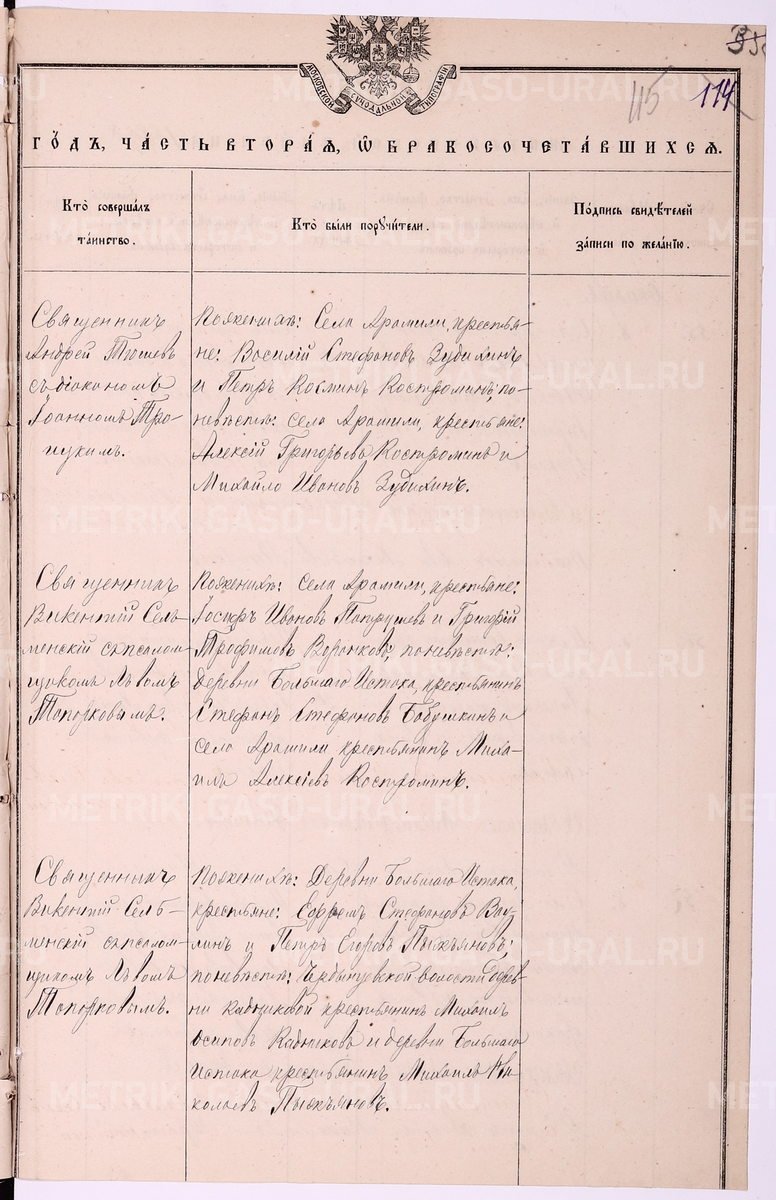 МОСКОВСКОЙ СѴНОДАЛЬНОЙ ТИПОГРАФІИ
115
114
ГО́ДЪ, ЧА́СТЬ ВТОРА́Ѧ, Ѽ БРАКОСОЧЕТА́ВШИХСѦ.
Кто̀ соверша́лъ
та́инство.
Кто̀ бы́ли порꙋчи́тели.
По́дпись свидѣ́телей
за́писи по жела́нїю.
Священникъ
Андрей Тюшевъ
съ діакономъ
Іоанномъ Тро-
ицкимъ.
По женихѣ: Села Арамили, крестья-
не: Василій Стефановъ Зудихинъ
и Петръ Козминъ Костроминъ; по
невѣстѣ: села Арамили, крестьяне:
Алексій Григорьевъ Костроминъ и
Михайло Ивановъ Зудихинъ.
Священникъ
Викентій Сель-
менскій съ псалом-
щикомъ Львомъ
Топорковымъ.
По женихѣ: села Арамили, крестьяне:
Іосифъ Ивановъ Патрушевъ и Григорій
Трофимовъ Воронковъ; по невѣстѣ:
деревни Большаго Истока, крестьянинъ
Стефанъ Стефановъ Бабушкинъ и
села Арамили крестьянинъ Миха-
илъ Алексіевъ Костроминъ.
Священникъ
Викентій Сель-
менскій съ псалом-
щикомъ Львомъ
Топорковымъ.
По женихѣ: Деревни Большаго Истока,
крестьяне: Ефремъ Стефановъ
и Петръ Егоровъ Пьянковъ;
по невѣстѣ: волости дерев-
ни Кадниковой крестьянинъ Михаилъ
Осиповъ Кадниковъ и деревни Большаго
Истока крестьянинъ Михаилъ Ни-
колаевъ
METRIKI.GASO-URAL.RU